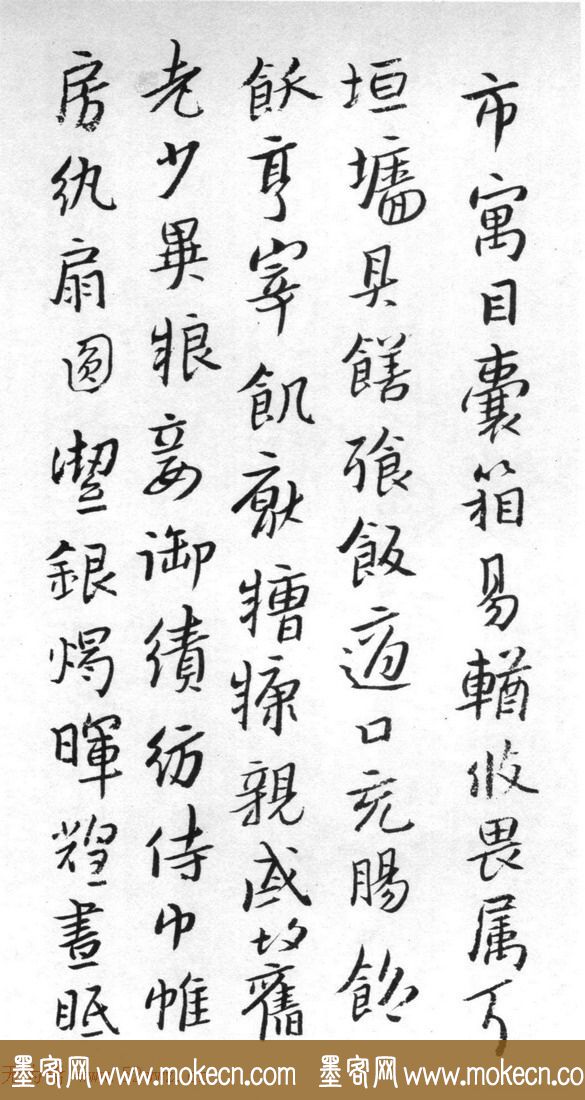 市寓目囊箱易輶攸畏属耳
垣墙具饍飡飯適口充腸飽
飫亨宰飢厭糟糠親戚故舊
老少異粮妾御績紡侍巾帷
房紈扇圆潔銀燭暐煌晝眠
墨客网 www.mokecn.com 墨客网 www.mokecn.com